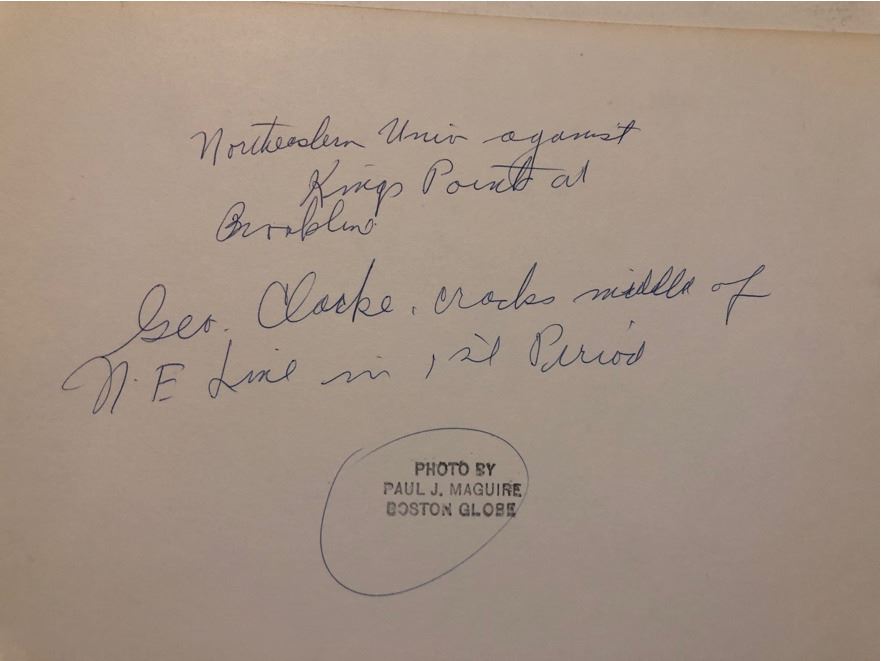 Northeastern Univ against
Kings Point at
Brookline
Geo. Clarke, cracks middle of
N.E Line in 1st Period
PHOTO BY
PAUL J. MAGUIRE
BOSTON GLOBE